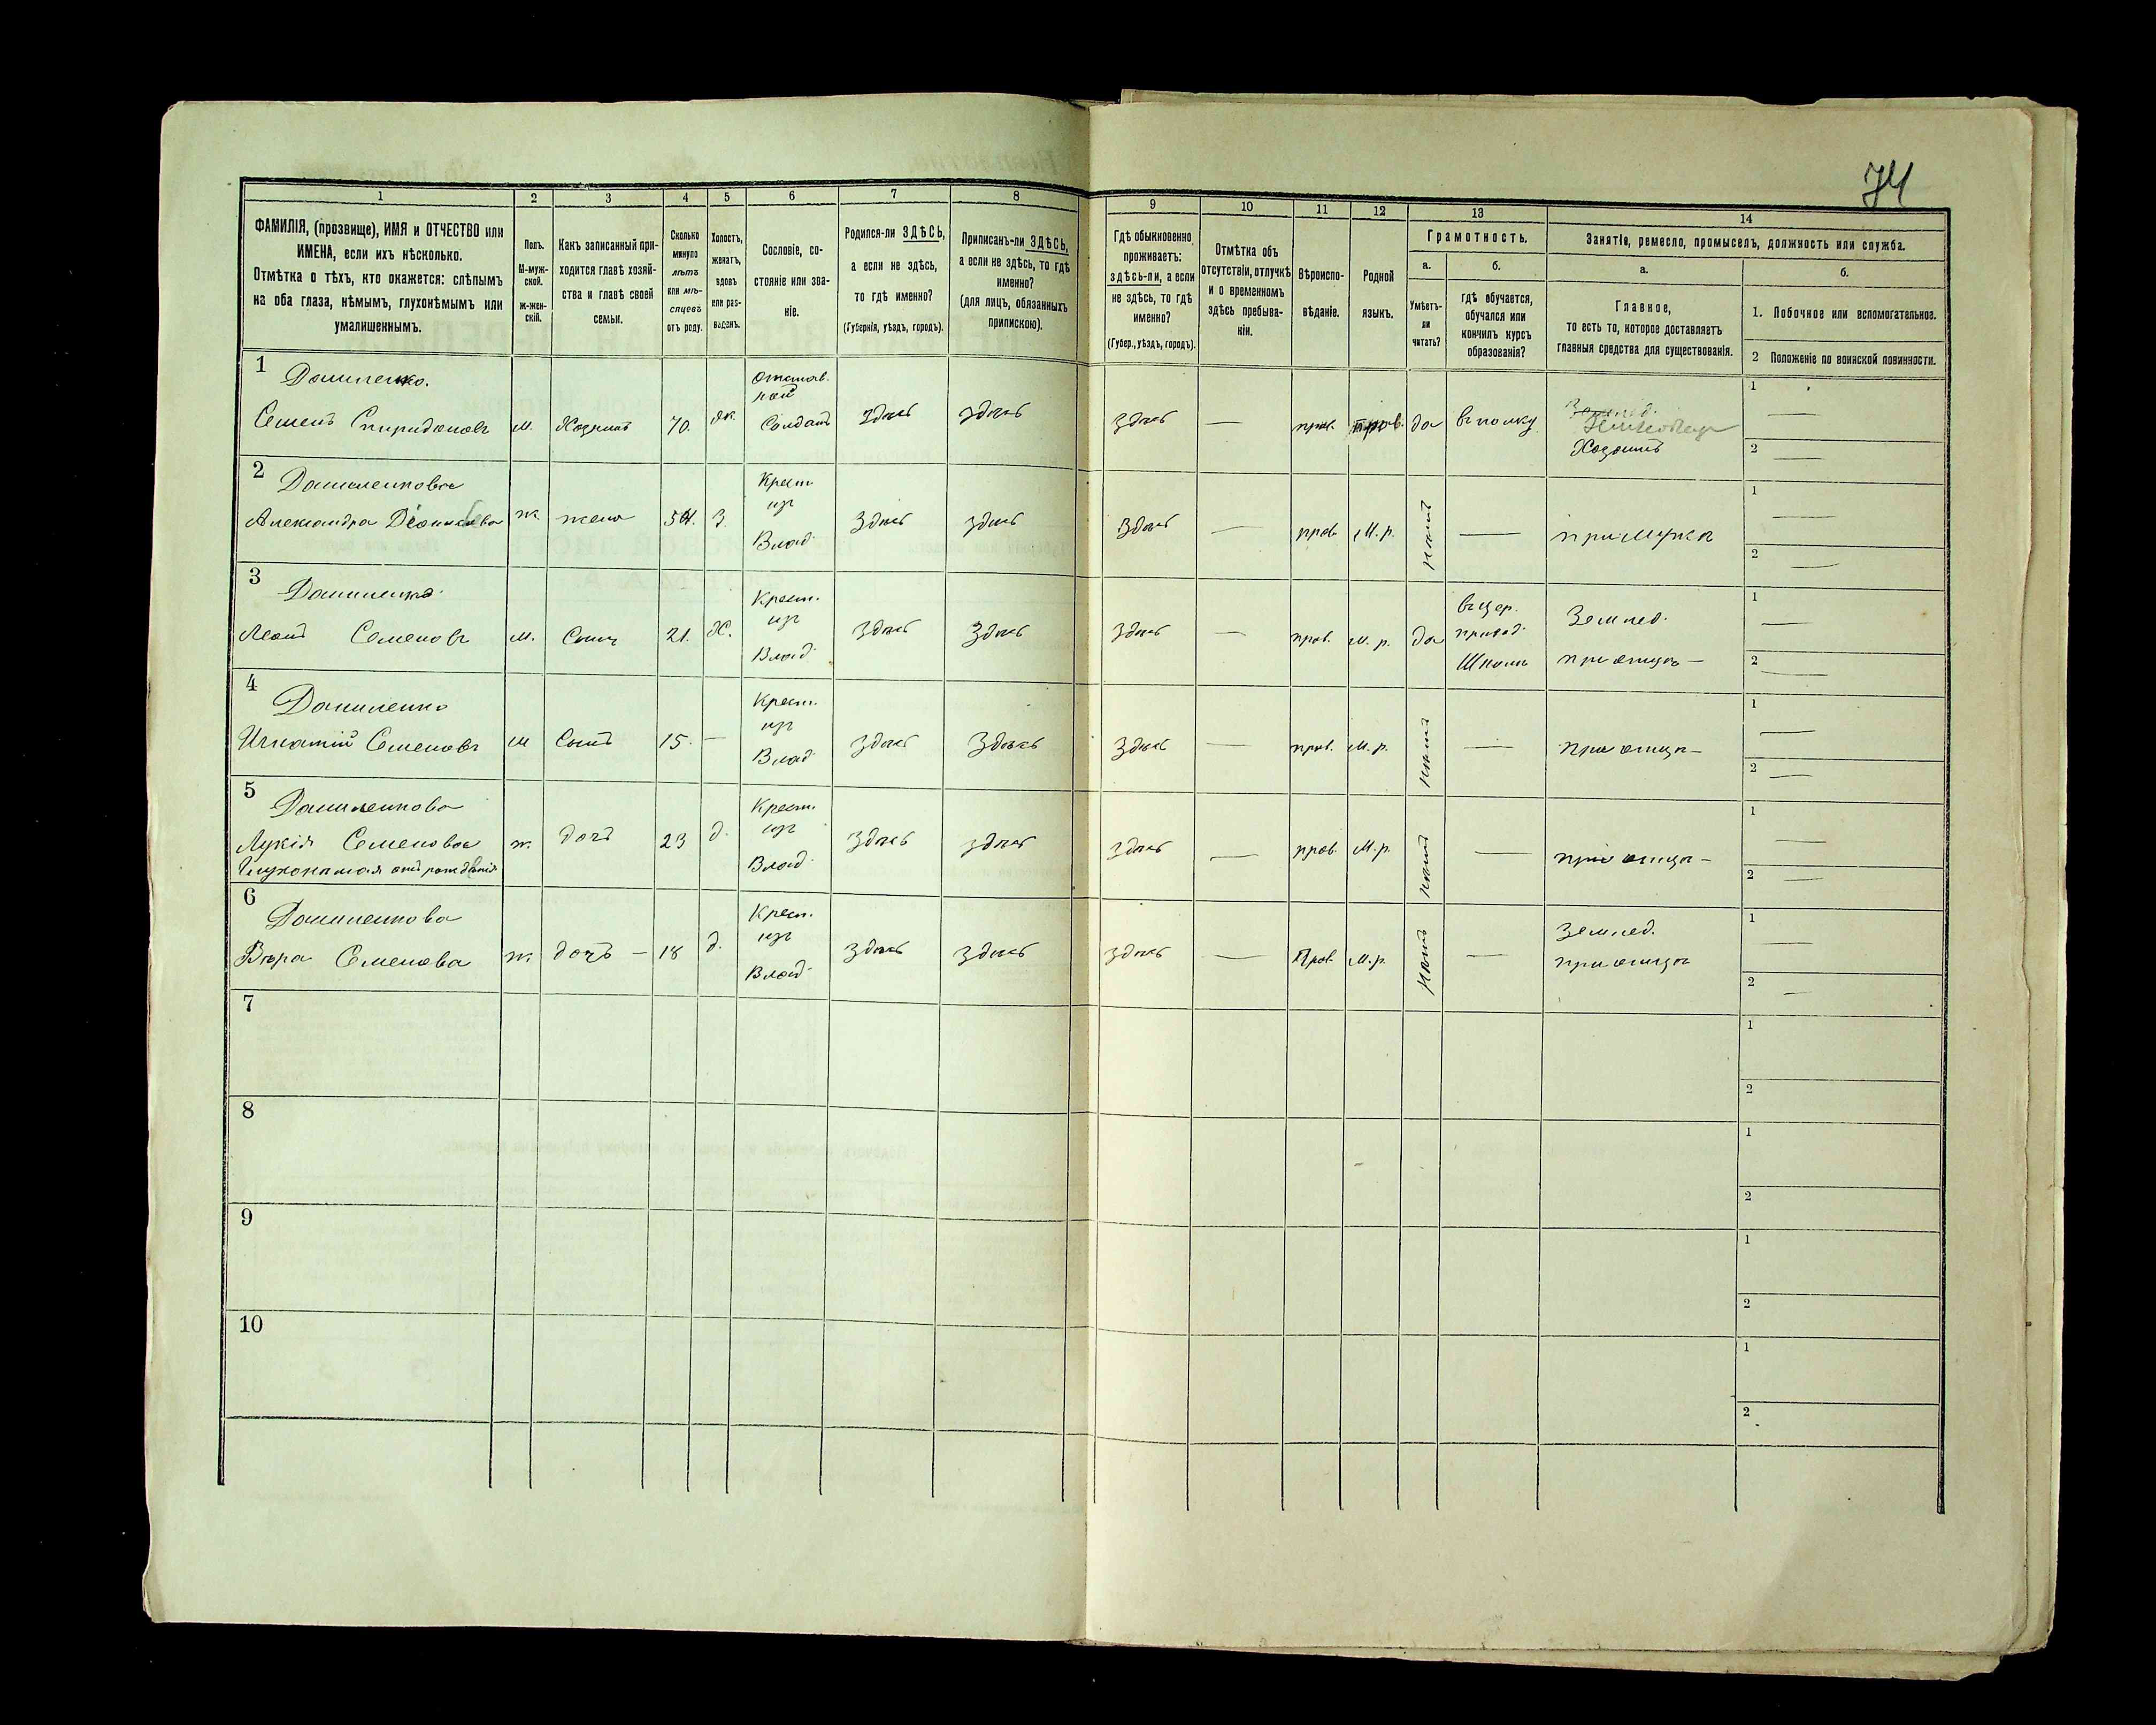 74
1 2 3 4 5 6 7 8 9 10 11 12 13 14
ФАМИЛІЯ, (прозвище), ИМЯ и ОТЧЕСТВО или
ИМЕНА, если ихъ нѣсколько.
Отмѣтка о тѣхъ, кто окажется: слѣпымъ
на оба глаза, нѣмымъ, глухонѣмымъ или
умалишеннымъ.
Полъ.
М-муж-
ской.
Ж-жен-
скій.
Какъ записанный при-
ходится главѣ хозяй-
ства и главѣ своей
семьи.
Сколько
минуло
лѣтъ
или мѣ-
сяцевъ
отъ роду.
Холостъ,
женатъ,
вдовъ
или раз-
веденъ.
Сословіе, со-
стояніе или зва-
ніе.
Родился-ли ЗДѢСЬ,
а если не здѣсь,
то гдѣ именно?
(Губернія, уѣздъ, городъ).
Приписанъ-ли ЗДѢСЬ,
а если не здѣсь, то гдѣ
именно?
(для лицъ, обязанныхъ
припискою).
Гдѣ обыкновенно
проживаетъ:
здѣсь-ли, а если
не здѣсь, то гдѣ
именно?
(Губер., уѣздъ, городъ).
Отмѣтка объ
отсутствіи, отлучкѣ
и о временномъ
здѣсь пребыва-
ніи.
Вѣроиспо-
вѣданіе.
Родной
языкъ.
Грамотность.
а.
Умѣетъ-
ли
читать?
б.
гдѣ обучается,
обучался или
кончилъ курсъ
образованія?
Занятіе, ремесло, промыселъ, должность или служба.
а.
Главное,
то есть то, которое доставляетъ
главныя средства для существованія.
б.
1. Побочное или вспомогательное.
2 Положеніе по воинской повинности.
1
Даниленко.
Семенъ Спиридоновъ
м.
Хозяинъ
70.
жн.
Отстав.
ной
Солдатъ
здѣсь
здѣсь
здѣсь
—
прав.
да
въ полку
Землед.
Хозяинъ
1 —
2 —
2
Даниленкова
Александра
ж.
жена
З.
Крест.
изъ
Влад.
здѣсь
здѣсь
здѣсь
—
прав.
М. р.
нѣтъ
—
при мужѣ
1 —
2 —
3
Даниленко
Леонъ Семеновъ
м.
Сынъ
21.
Х.
Крест.
изъ
Влад.
здѣсь
здѣсь
здѣсь
—
прав.
м. р.
да
въ цер.
приход.
Школѣ
Землед.
при отцѣ —
1 —
2 —
4
Даниленко
Игнатій Семеновъ
м
Сынъ
15.
—
Крест.
изъ
Влад.
здѣсь
здѣсь
здѣсь
—
прав.
М. р.
нѣтъ
—
при отцѣ —
1 —
2 —
5
Даниленкова
Лукія Семенова
Глухонѣмая отъ рожденія
ж.
дочь
23
д.
Крест.
изъ
Влад.
здѣсь
здѣсь
здѣсь
—
прав.
М. р.
нѣтъ
—
при отцѣ —
1 —
2 —
6
Даниленкова
Вѣра Семенова
ж.
дочь —
18
д.
Крест.
изъ
Влад.
здѣсь
здѣсь
здѣсь
—
Прав.
М. р.
нѣтъ
—
Землед.
при отцѣ
1 —
2 —
7
1
2
8
1
2
9
1
2
10
1
2